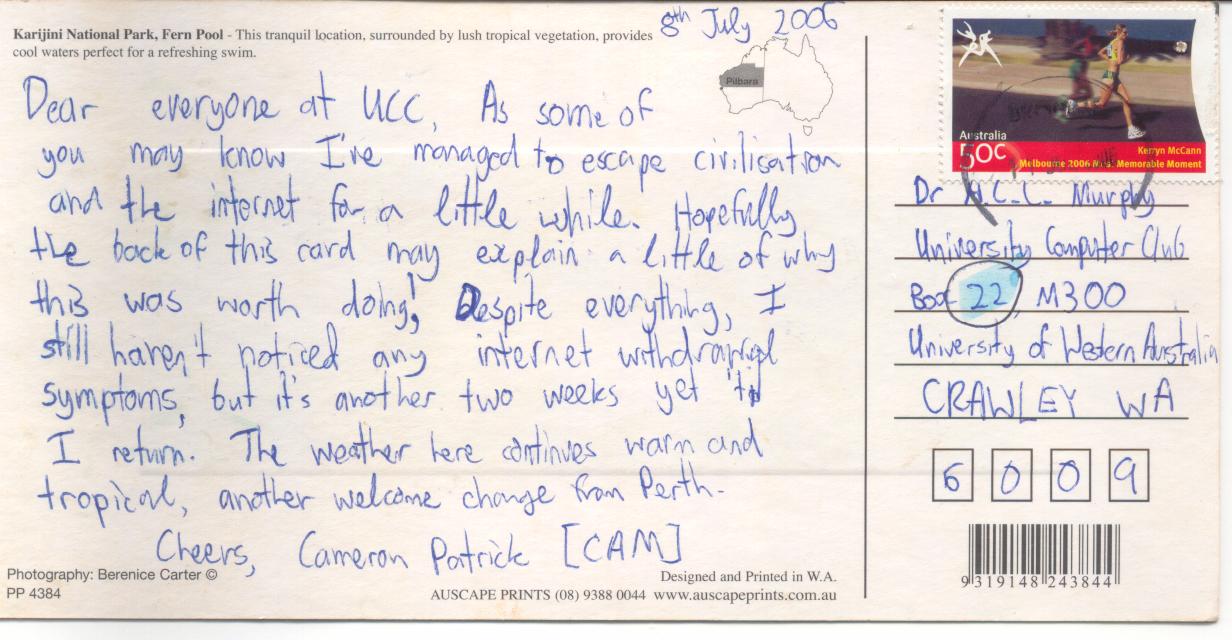 8th July 2006
Karijini National Park, Fern Pool - This tranquil location, surrounded by lush tropical vegetation, provides
cool waters perfect for a refreshing swim.
Pilbara
Dear everyone at UCC, As some of
you may know I've managed to escape civilisation
and the internet for a little while. Hopefully
the back of this card may explain a little of why
this was worth doing! Despite everything, I
still haven't noticed any internet withdrawal
symptoms, but it's another two weeks yet 'til
I return. The weather here continues warm and
tropical, another welcome change from Perth.
Cheers, Cameron Patrick [CAM]
Photography: Berenice Carter ©
PP 4384
Designed and Printed in W.A.
AUSCAPE PRINTS (08) 9388 0044 www.auscapeprints.com.au
Australia
50c
Kerryn McCann
Melbourne 2006 Most Memorable Moment
Dr A.C.C. Murphy
University Computer Club
Box 22, M300
University of Western Australia
CRAWLEY WA
6 0 0 9
9 319148 243844